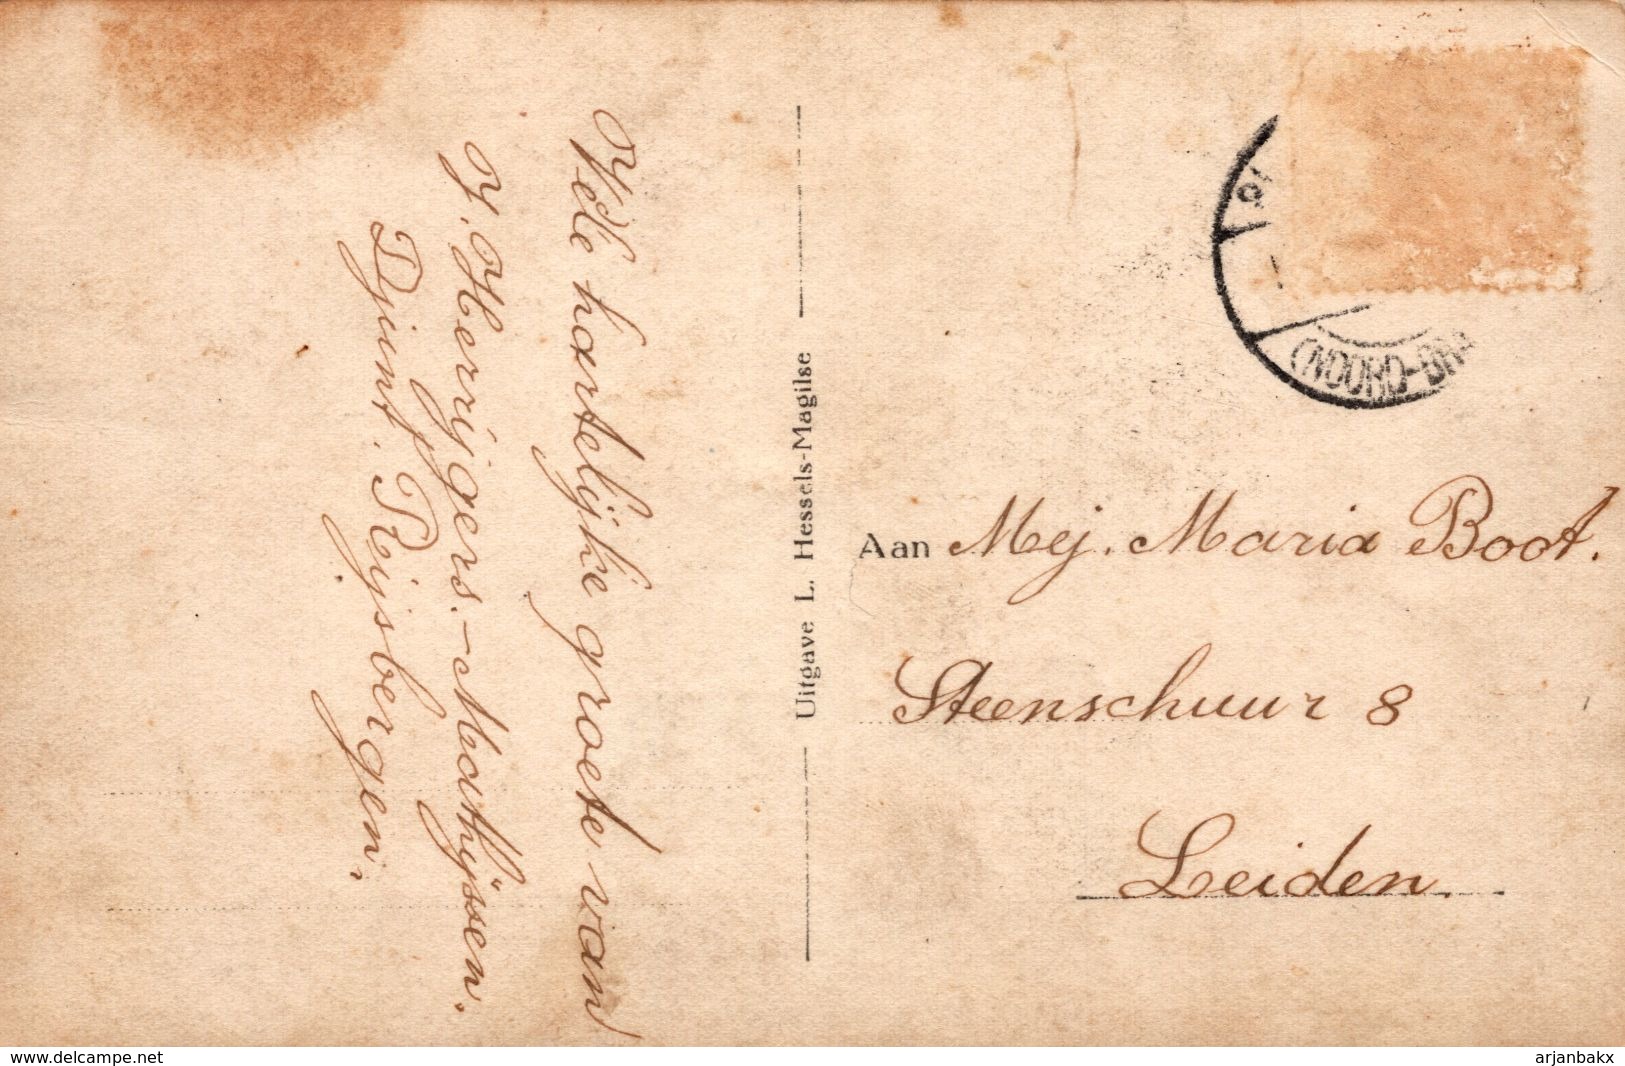 Vele hartelijke groete van
J. Herrijgers.-Mathijssen.
Djiunt. Rijsbergen.
Uitgave L. Hessels-Magilse
(NOORD-BRA
Aan Mej. Maria Boot.
Steenschuur 8
Leiden.
www.delcampe.net
arjanbakx